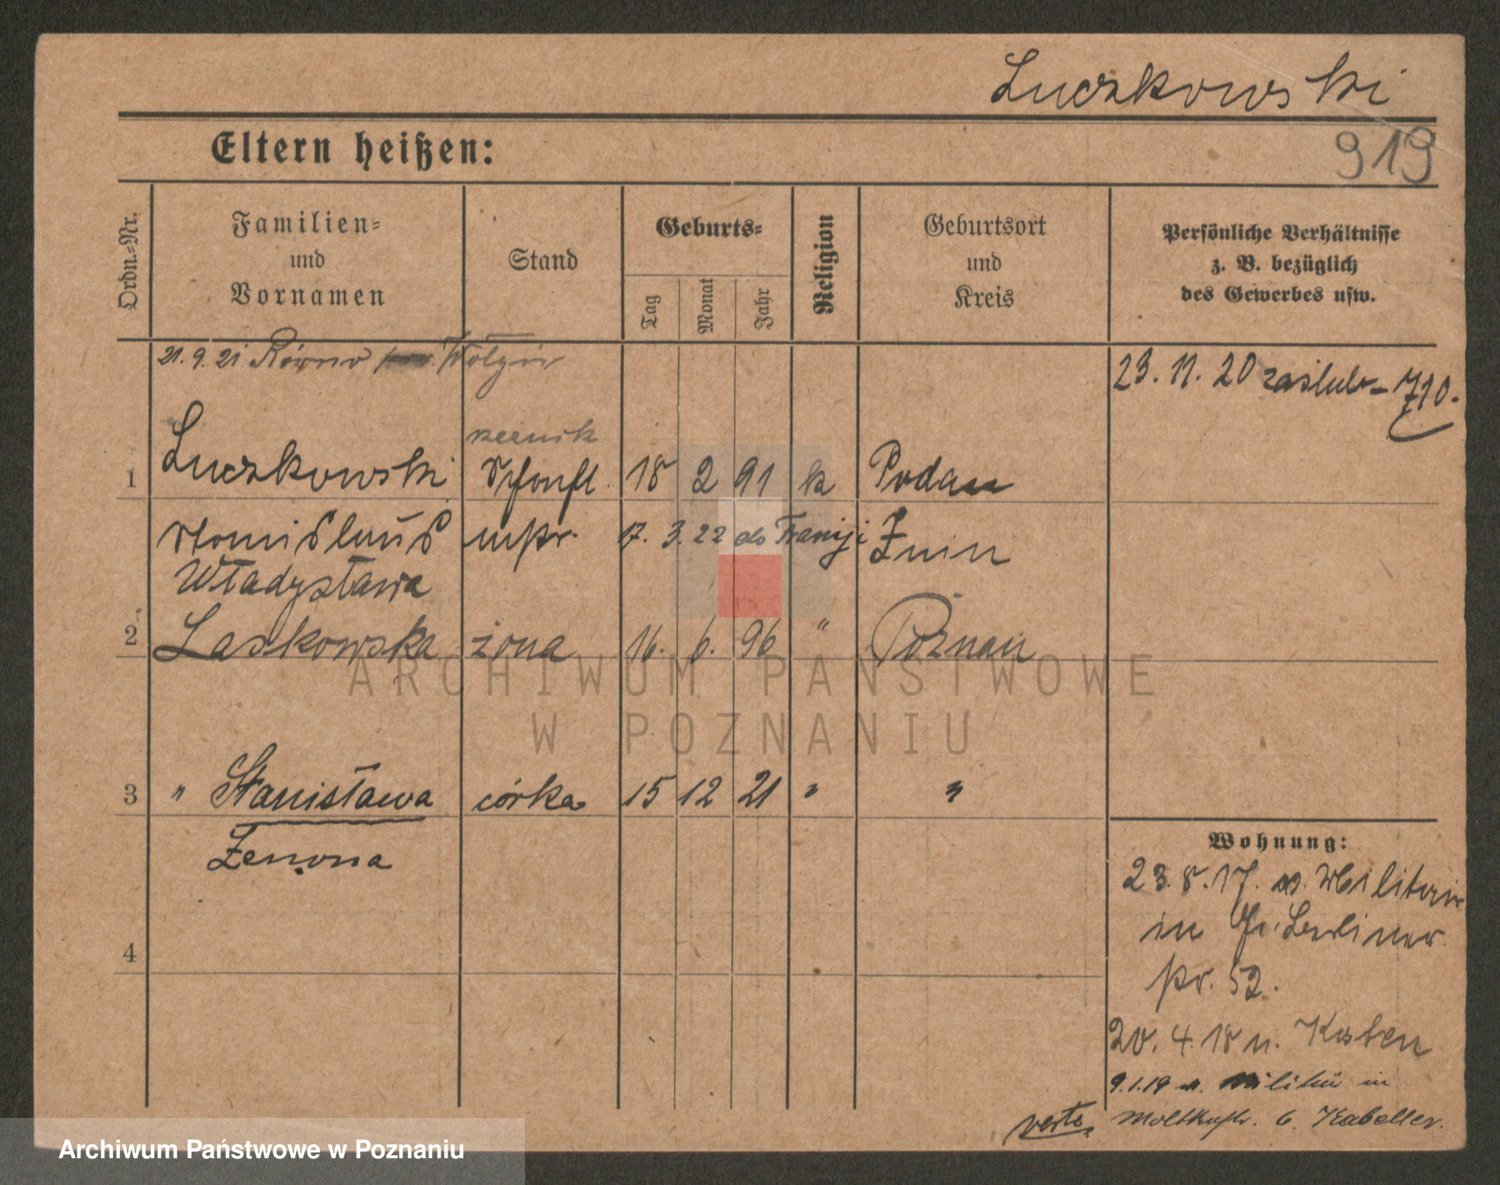 Luczkowski
919
Eltern heißen:
Ordn.-Nr.
Familien-
und
Vornamen
Stand
Geburts-
Tag
Monat
Jahr
Religion
Geburtsort
und
Kreis
Persönliche Verhältnisse
z. B. bezüglich
des Gewerbes usw.
21. 9. 21 Równo Wołyń
23. 11. 20 zaślub. 710.
rzeźnik
1 Luczkowski 18 2 91 k Podan
17. 3. 22 do Francji Znin
Władysława
2 Laskowska żona 16. 6. 96 " Poznan
ARCHIWUM PAŃSTWOWE
W POZNANIU
3 " Stanisława córka 15 12 21 " "
Zenona
4
Wohnung:
23. 8. 17. v. Militär
in Berliner
52.
20. 4. 18 n. Kosten
9.1.19 v. Militär in
Moltkestr. 6.
verte
Archiwum Państwowe w Poznaniu